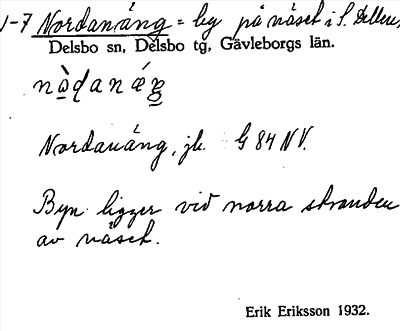 1-7 Nordanäng = by på näset i S. Dellen,
Delsbo sn, Delsbo tg, Gävleborgs län.
Nordanäng, jb. G 84 NV.
Byn ligger vid norra stranden
av näset.
Erik Eriksson 1932.